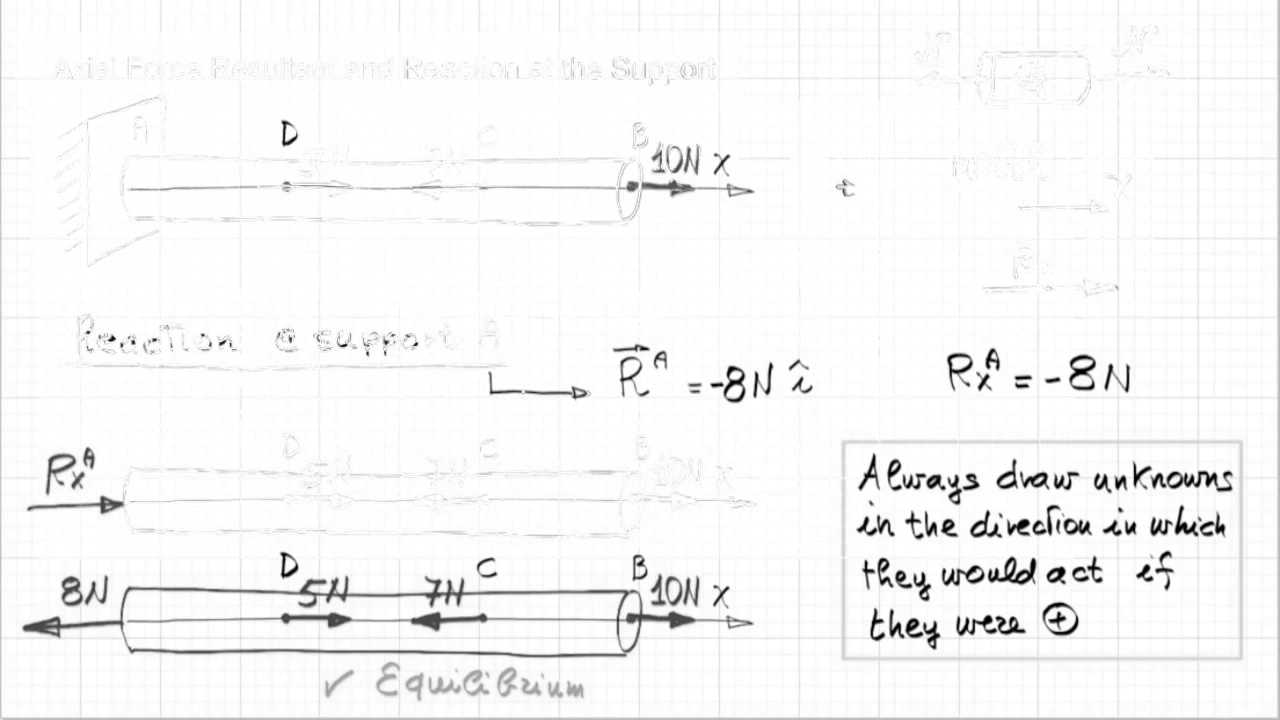 Axial Force Resultant and Reaction at the Support
A D 5N 7N C B 10N x
Reaction @ support A
R^A = -8N î
Rx^A = -8N
Rx^A D 5N 7N C B 10N x
8N D 5N 7N C B 10N x
✓ Equilibrium
Always draw unknowns
in the direction in which
they would act if
they were ⊕